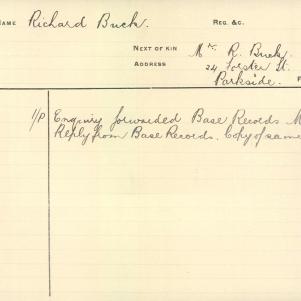 NAME Richard Buck. REG. &C.
NEXT OF KIN Mr. R. Buck,
ADDRESS 24 Forster St.
Parkside. F
1/P Enquiry forwarded Base Records M
Reply from Base Records. Copy of same